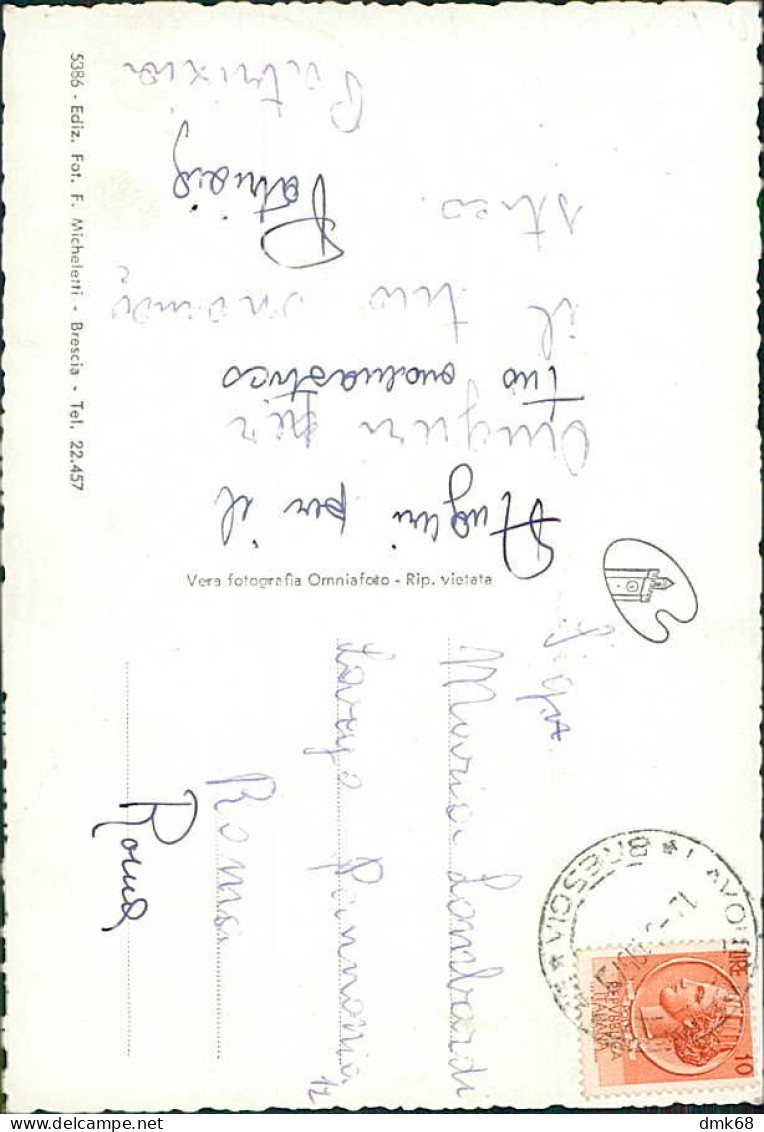 Auguri per il
tuo onomastico
Patrizia
Auguri per
il tuo onoma
stico.
Patrizia
5386 - Ediz. Fot. F. Micheletti - Brescia - Tel. 22.457
Vera fotografia Omniafoto - Rip. vietata
Sig.na
Maria Lombardi
Largo Pannonia 12
Roma
Roma
BRESCIA
LIRE 10
REPVBBLICA
ITALIANA
dmk68